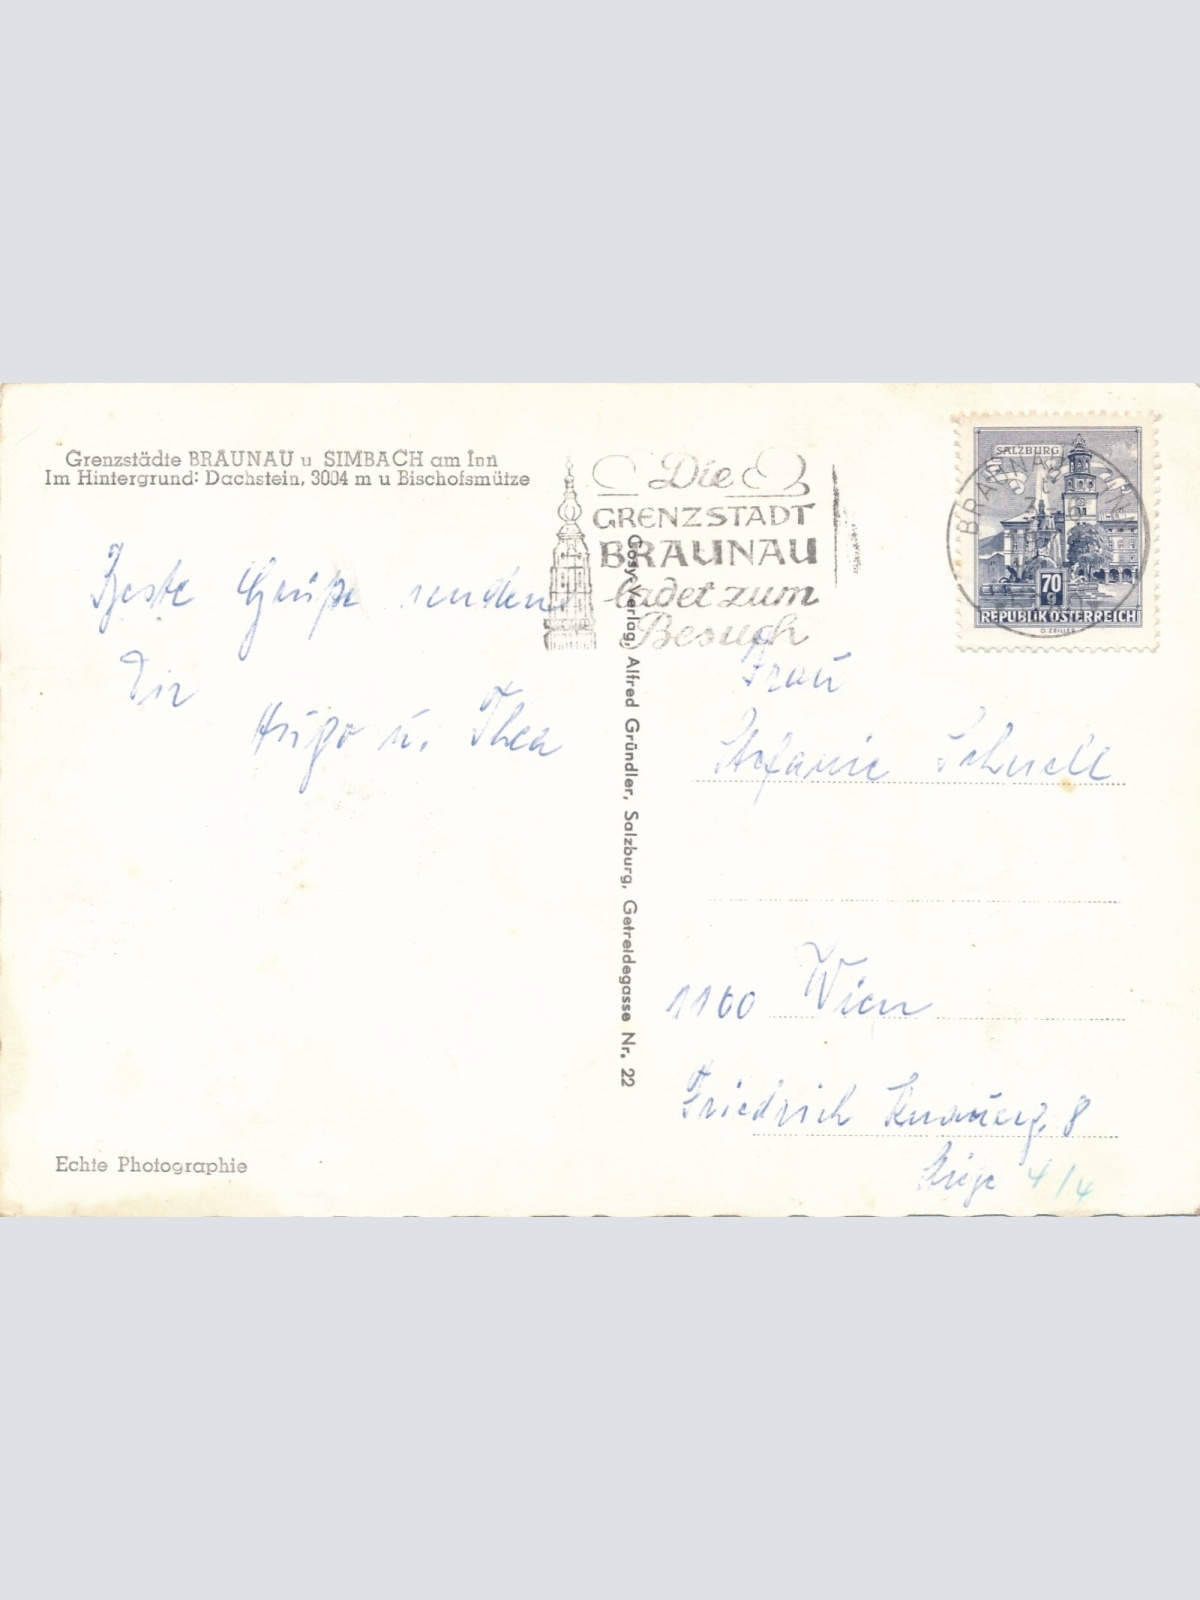 Grenzstädte BRAUNAU u SIMBACH am Inn
Im Hintergrund: Dachstein, 3004 m u Bischofsmütze
Beste Grüße senden
Dir
Hugo u. Thea
Echte Photographie
Cosy-Verlag, Alfred Gründler, Salzburg, Getreidegasse Nr. 22
Die
GRENZSTADT
BRAUNAU
ladet zum
Besuch
SALZBURG
BRAUNAU INN
70 g
REPUBLIK ÖSTERREICH
O. ZEILLER
Frau
Stefanie Schnell
1160 Wien
Friedrich Knauerg. 8
4/4